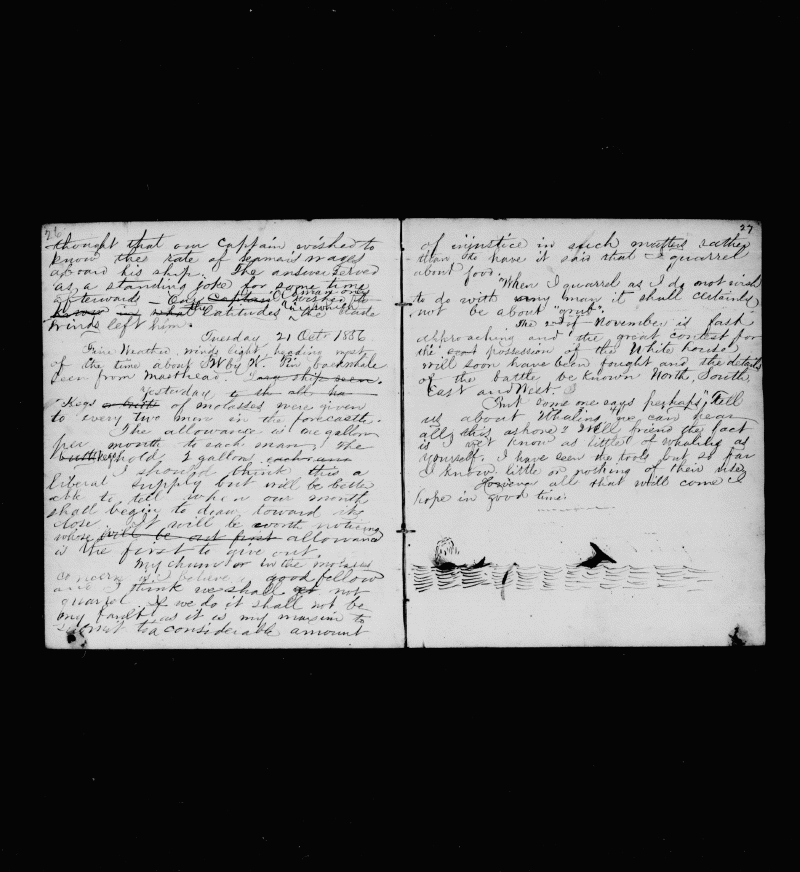 26
thought that our Captain wished to
know the rate of seamans wages
aboard his ship. The answer served
as a standing joke for some time
afterward - Only Captain A man once wished to
know in what latitudes the trade
winds left him.
Tuesday, 21 Oct. 1856
Fine Weather, winds light, heading most
of the time about SW by W. Fin back whale
seen from masthead. seen.
Yesterday to the
Kegs of molasses were given
to every two men in the forecastle.
The allowance is one gallon
per month to each man, the
kegs hold 2 gallons each
I should think this a
liberal supply but will be better
able to tell when our month
shall begin to draw toward its
close. It will be worth noticing
whose will be out first allowance
is the first to give out.
My chum or in the molasses
concern is I believe good fellow
and I think we shall get not
quarrel. If we do it shall not be
my fault as it is my maxim to
submit to a considerable amount
27
of injustice in such matters rather
than to have it said that I quarrel
about food.
"When I quarrel as I do not wish
to do with any man it shall certainly
not be about "grub".
The of November is fast
approaching and the great contest for
the possession of the White house
will soon have been fought and the details
of the battle be known North, South,
East and West.
But some one says perhaps, "Tell
us about Whaling, we can hear
all this ashore"? Well friend the fact
is I know as little of whaling as
yourself. I have seen the tools but so far
I know little or nothing of their use
However all that will come I
hope in good time.